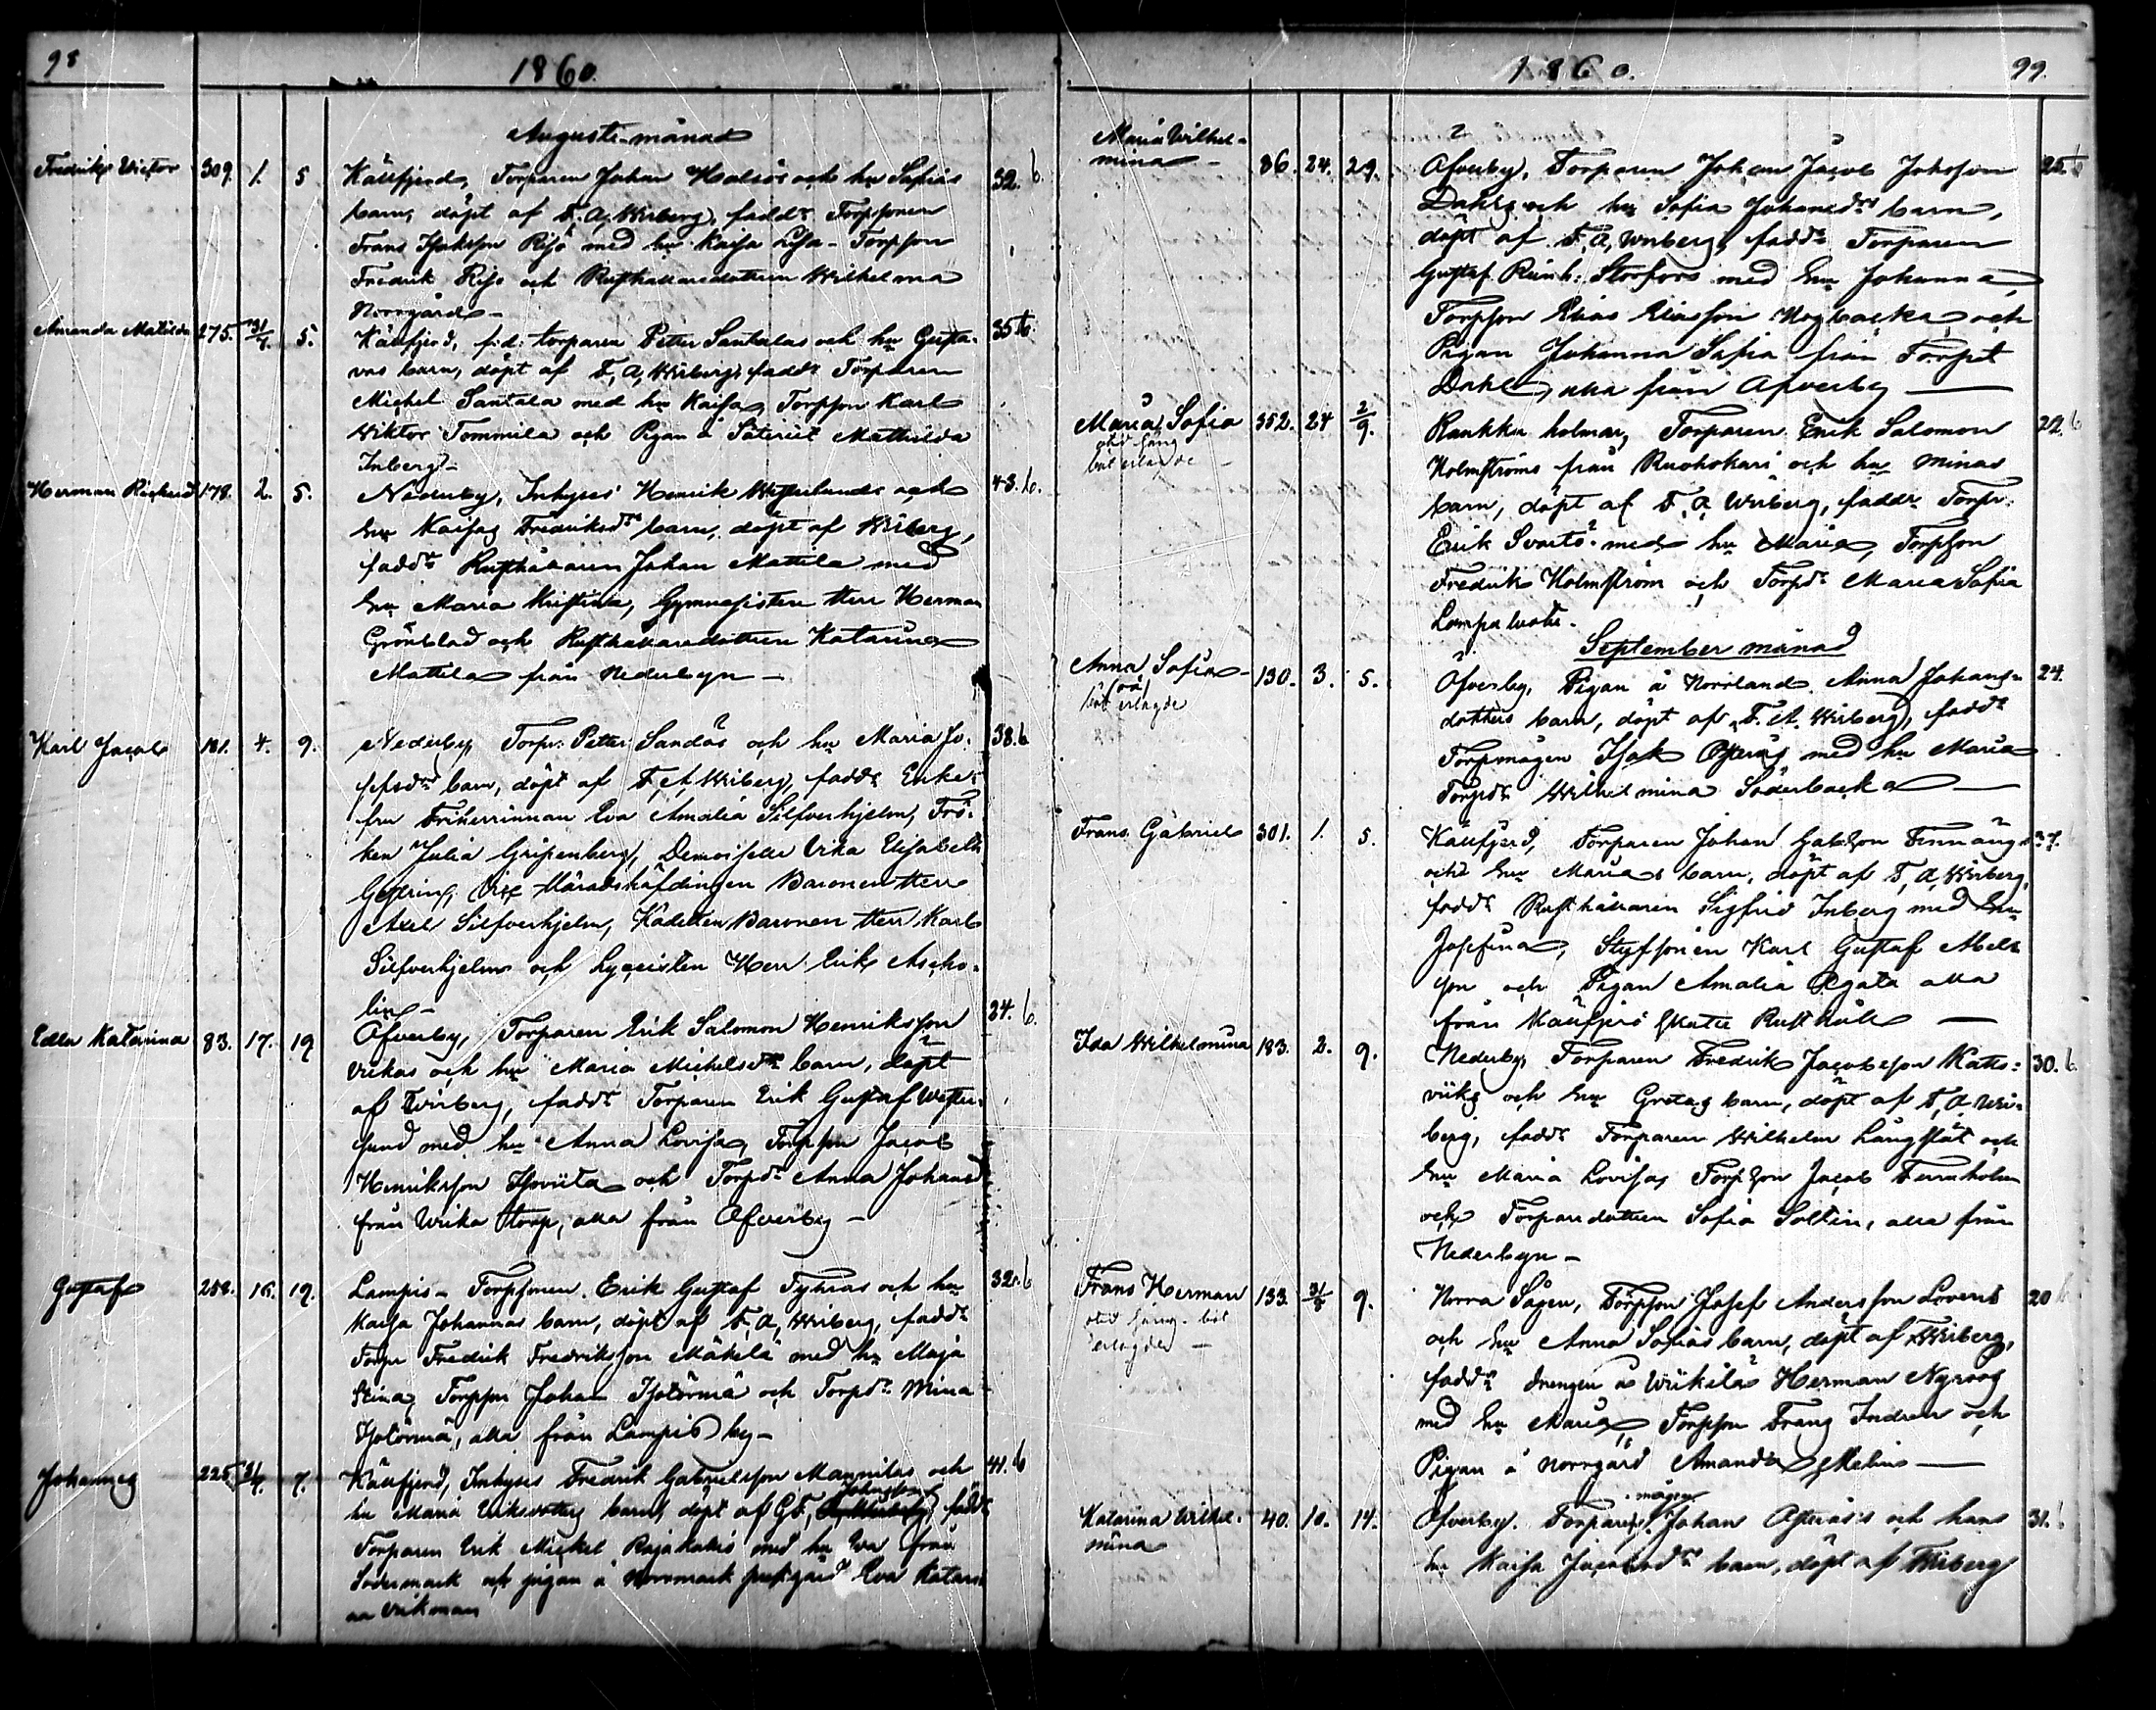 98
1860.
Augusti-månad
Fredrik Victor 309. 1. 5 Käufjerd, Torparen Johan Holsös och hu Sofias 32. b.
barn, döpt af F. A. Wiberg, faddr Torpsonen
Frans Isaksson Risö med hu Kajsa Lisa - Torpson
Fredrik Risö och Rusthållaredottren Wilhelmina
Norrgård -
Amanda Matilda 275. 31/7. 5. Käufjerd, f:d: torparen Petter Santalas och hu Gusta- 35 b.
vas barn, döpt af F. A. Wiberg, faddr Torparen
Michel Santala med hu Kaisa, Torpson Karl
Wiktor Tommila och Pigan å Säteriet Mathilda
Inberg -
Herman Richard 178. 2. 5. Nederby, Inhyses Henrik Westerlunds och 43. b.
hu Kaisas Fredriksdrs barn, döpt af Wiberg,
faddr Rusthållaren Johan Mattila med
hu Maria Kristina, Gymnasisten Herr Herman
Grönblad och Rusthållaredottren Katarina
Mattila från Nederbyn -
Karl Jacob 181. 4. 9. Nederby Torp: Petter Sandös och hu Maria Jo- 38. b
sefsdrs barn, döpt af F. A. Wiberg, faddr Enke-
fru Friherrinnan Eva Amalia Silfverhjelm, Frö-
ken Julia Gripenberg, Demoiselle Ulrika Elisabeth
Vice Häradshöfdingen Baronen Herr
Axel Silfverhjelm, Kadetten Baronen Herr Karl
Silfverhjelm och Lyceisten Herr Erik Ascho-
lin -
Edla Katarina 83. 17. 19 Öfverby, Torparen Erik Salomon Henriksson 24. b.
och hu Maria Michelsdrs barn, döpt
af Wiberg, faddr Torparen Erik Gustaf Wester-
lund med hu Anna Lovisa, Torpson Jacob
Henriksson och Torpdr Anna Johansd
från torp, alla från Öfverby -
Gustaf 258. 16. 19. Lampis - Torpsonen Erik Gustaf Tyhras och hu 32. b
Kaisa Johannas barn, döpt af F. A. Wiberg, faddr
Torpr Fredrik Fredriksson Mäkelä med hu Maja
Stina, Torpson Johan Isotörmä och Torpdr Mina
Isotörmä, alla från Lampis by -
Johannes 225. 31/7. 7. Käufjerd, Inhyses Fredrik Gabrielsson Mannilas och 41. b
hu Maria Eriksdotters barn, döpt af G.F. faddr
Torparen Erik Mickel med hu Eva från
Södermark och pigan å Norrmark prestgård Eva Katari-
na Vikman
1860.
99.
Maria Wilhel-
mina - 86. 24. 29. Öfverby, Torparen Johan Jacob Johsson 25. b
Dahls och hu Sofia Johansdrs barn,
döpt af F. A. Wiberg, faddr Torparen
Gustaf Storfors med hu Johanna,
Torpson Elias Eliasson och
Pigan Johanna Sofia från Torpet
Dahl, alla från Öfverby
Maria Sofia 352. 24 2/9. Rankku holmar, Torparen Erik Salomon 22. b
Holmströms från Ruohokari och hu Minas
barn, döpt af F. A. Wiberg, faddr Torpr
Erik Svartö med hu Maria, Torpson
Fredrik Holmström och Torpdr Maria Sofia
September månad
Anna Sofia 130. 3. 5. Öfverby, Pigan å Norrland Anna Johans- 24.
oä
erlagde
dotters barn, döpt af F. A. Wiberg, faddr
Torpmågen Isak Österås med hu Maria
Torpdr Wilhelmina Söderbacka
Frans Gabriel 301. 1. 5. Käufjerd, Torparen Johan Gabrson Finnängs 27.
och hu Marias barn, döpt af F. A. Wiberg,
faddr Rusthållaren Sigfrid Inberg med hu
Josefina, Styfsonen Karl Gustaf Abels-
son och Pigan Amalia Agata alla
från Käufjerd Rusthåll
Ida Wilhelmina 183. 2. 9. Nederby, Torparen Fredrik Jacobsson Katts- 30. b.
viks och hu Gretas barn, döpt af F. A. Wi-
berg, faddr Torparen Wilhelm Långslät och
hu Maria Lovisa, Torpson Jacob Furuholm
och Torparedottren Sofia Soltin, alla från
Nederbyn -
Frans Herman 133. 31/8. 9. Norra Sågen, Torpson Josef Andersson Lovens 20
erlagde
och hu Anna Sofias barn, döpt af FWiberg,
faddr Drengen å Wiikilä Herman Nyroos
med hu Maria, Torpson Frans Indrén och
Pigan å Norrgård Amanda
Katarina Wilhel-
mina 40. 10. 14. Öfverby. Torparemågen Johan Österås's och hans 31. b
hu Kaisa Jacobsdrs barn, döpt af FWiberg